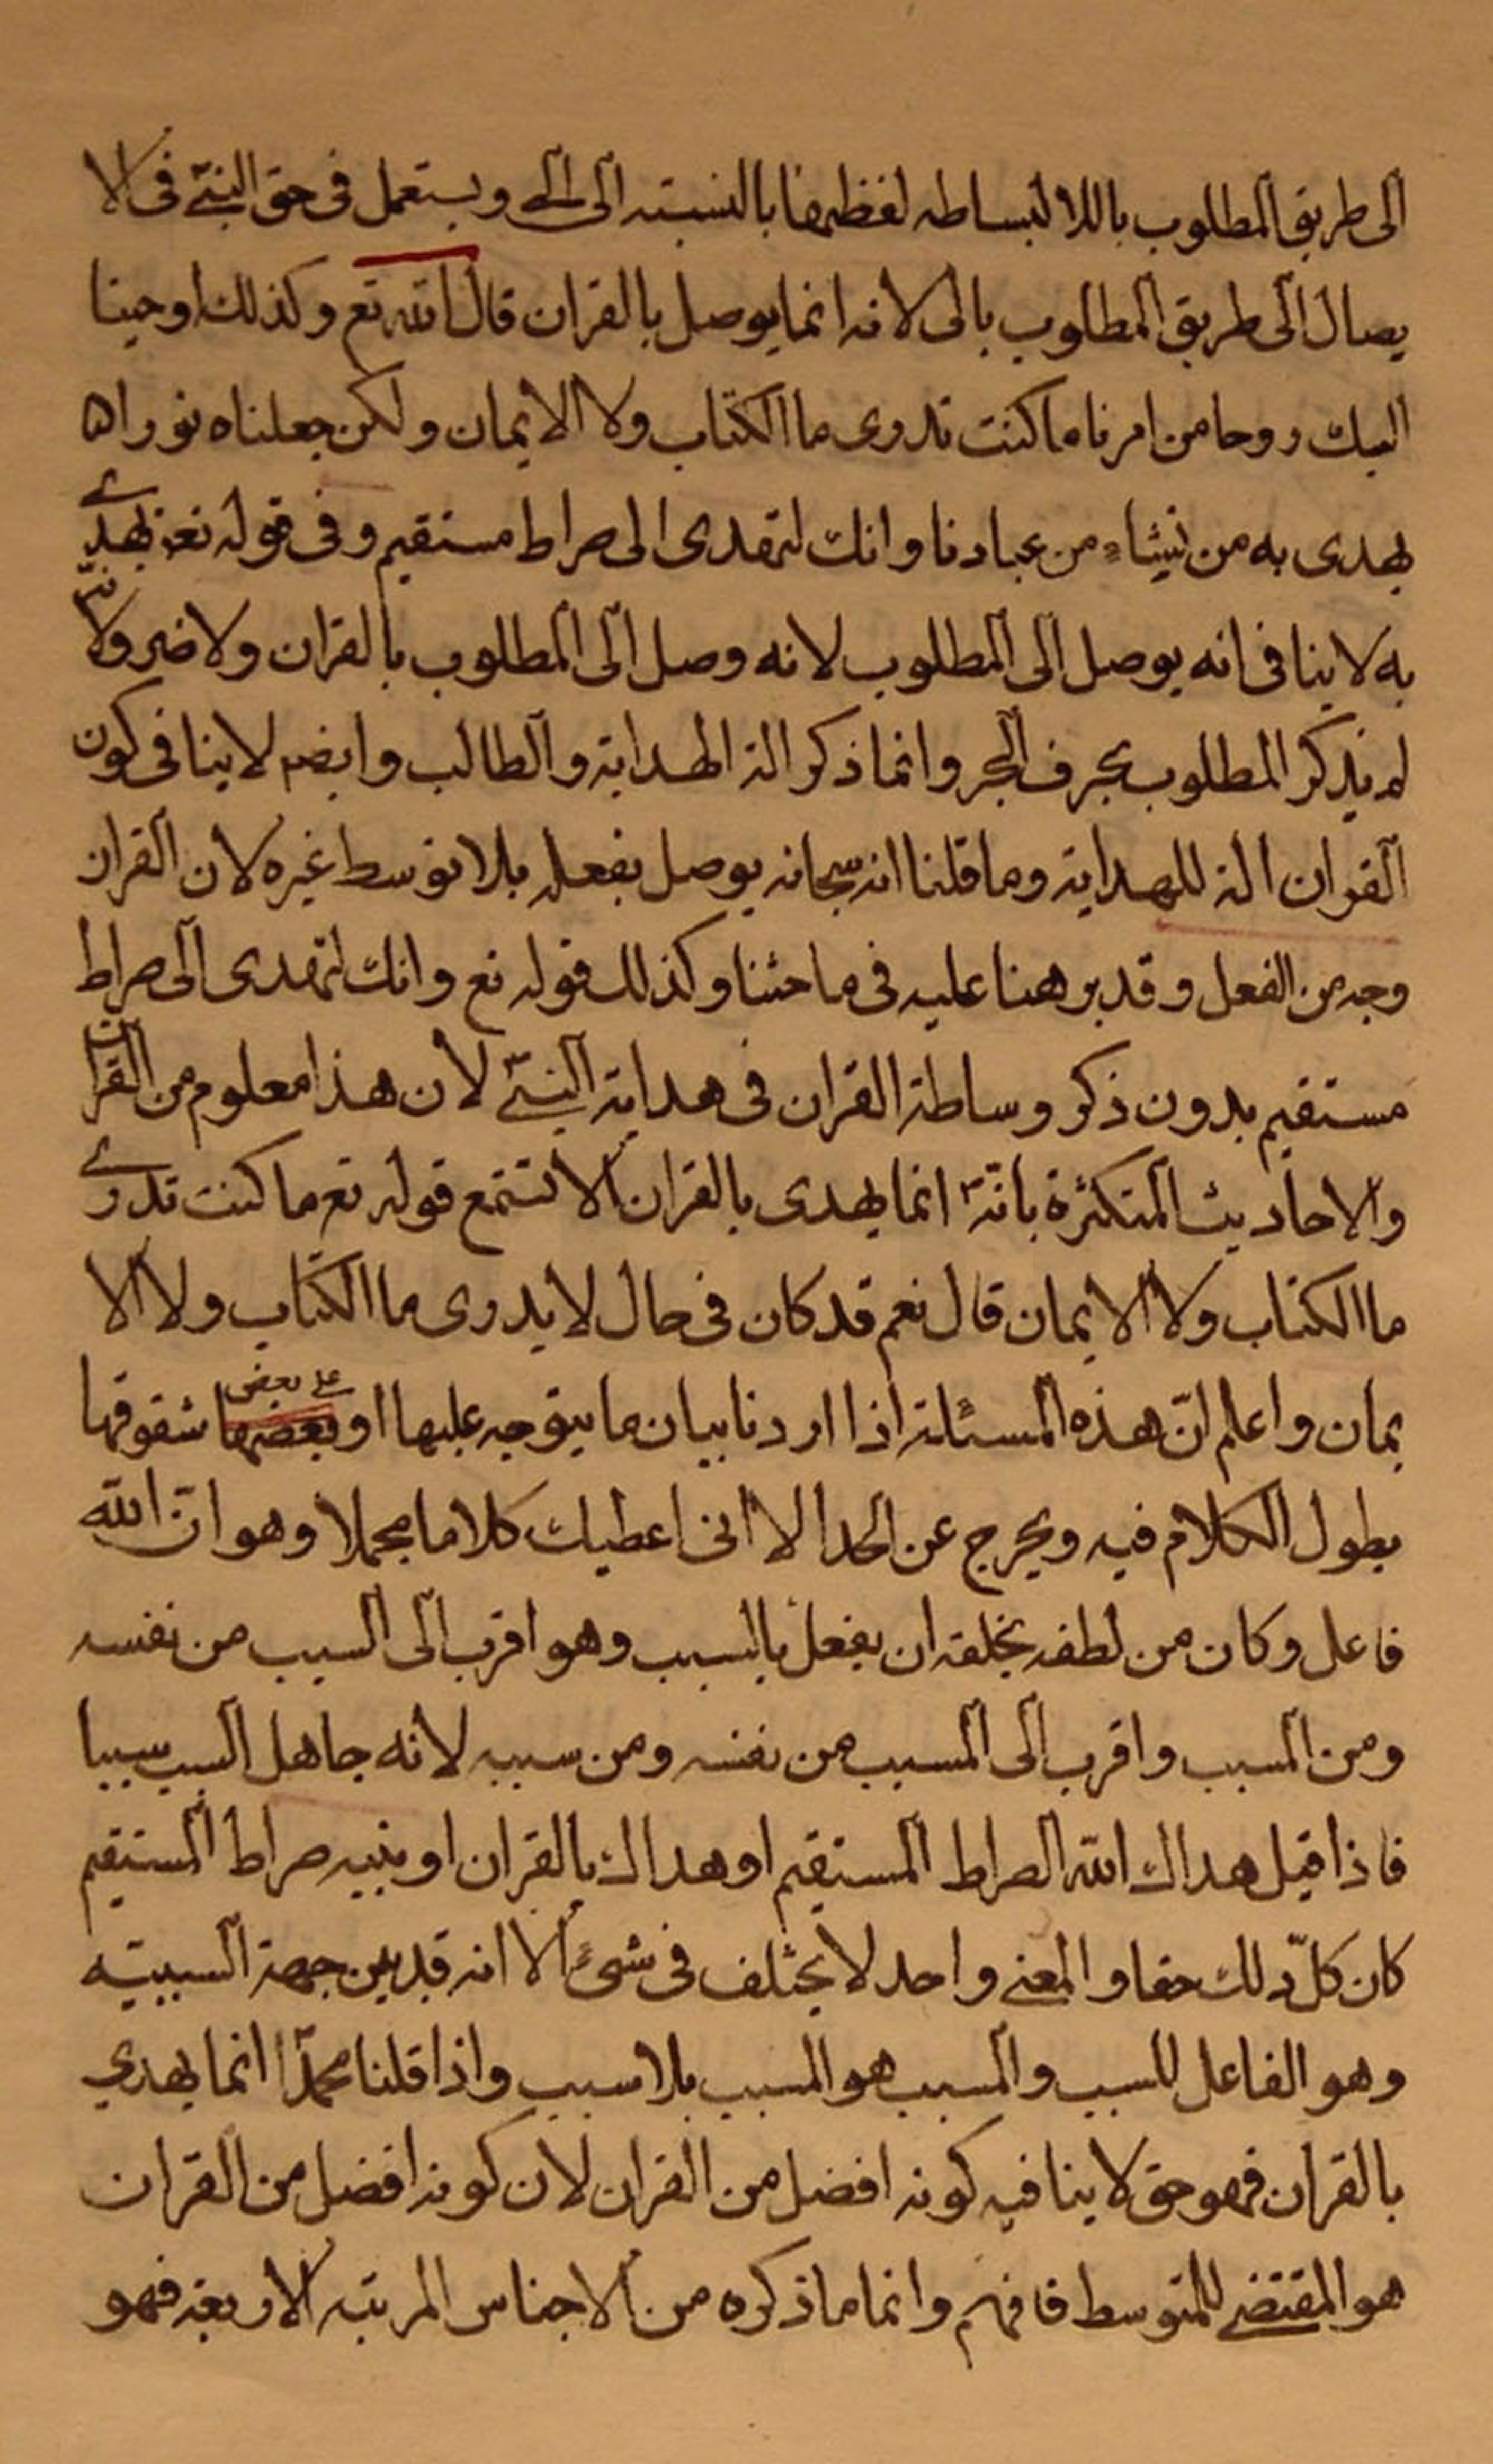 الى طريق المطلوب باللا لبساطه لفظهما بالنسبته الى الى ويستعمل فى حق النبىّ فى الا
يصال الى طريق المطلوب بالى لانه انما يوصل بالقران قال الله تع وكذلك اوحينا
اليك روحا من امرنا ما كنت تدرى ما الكتاب ولا الايمان ولكن جعلناه نورا
يهدى به من نشاء من عبادنا وانك لتهدى الى صراط مستقيم وفى قوله تعه يهدى
به لا ينافى انه يوصل الى المطلوب لانه وصل الى المطلوب بالقران ولا ضر ولانّه
لم يذكر المطلوب بحرف الجر وانما ذكر الة الهداية والطالب وايضم لا ينافى كون
القران الة للهداية وما قلنا انه سبحانه يوصل بفعله بلا توسط غيره لان القران
وجه من الفعل وقد برهنا عليه فى مباحثنا وكذلك قوله تع وانك لتهدى الى صراط
مستقيم بدون ذكر وساطة القران فى هداية النبىّ لان هذا معلوم من القران
والاحاديث المتكثرة بانّه انما يهدى بالقران الا تستمع قوله تع ما كنت تدرى
ما الكتاب ولا الايمان قال نعم قد كان فى حال لا يدرى ما الكتاب ولا الا
يمان واعلم انّ هذه المسئلة اذا اردنا بيان ما يتوجه عليها او بعضها على بعض شقوقها
يطول الكلام فيه ويخرج عن الحد الا انى اعطيك كلاما مجملا وهو انّ الله
فاعل وكان من لطفه بخلقه ان يفعل بالسبب وهو اقرب الى السبب من نفسه
ومن المسبب واقرب الى المسبب من نفسه ومن سببه لانه جاهل السبب سببا
فاذا قيل هداك الله الصراط المستقيم او هداك بالقران او بنبيه صراط المستقيم
كان كلّ ذلك حقا والمعنى واحد لا يختلف فى شىء الا انه قد يبين جهة السببيته
وهو الفاعل للسبب والمسبب هو المسبب بلا سبب واذا قلنا محمّدا انما يهدي
بالقران فهو حق لا ينافيه كونه افضل من القران لان كونه افضل من القران
هو المقتضى للتوسط فافهم وانما ما ذكره من الاجناس المرتبه الاربعة فهو